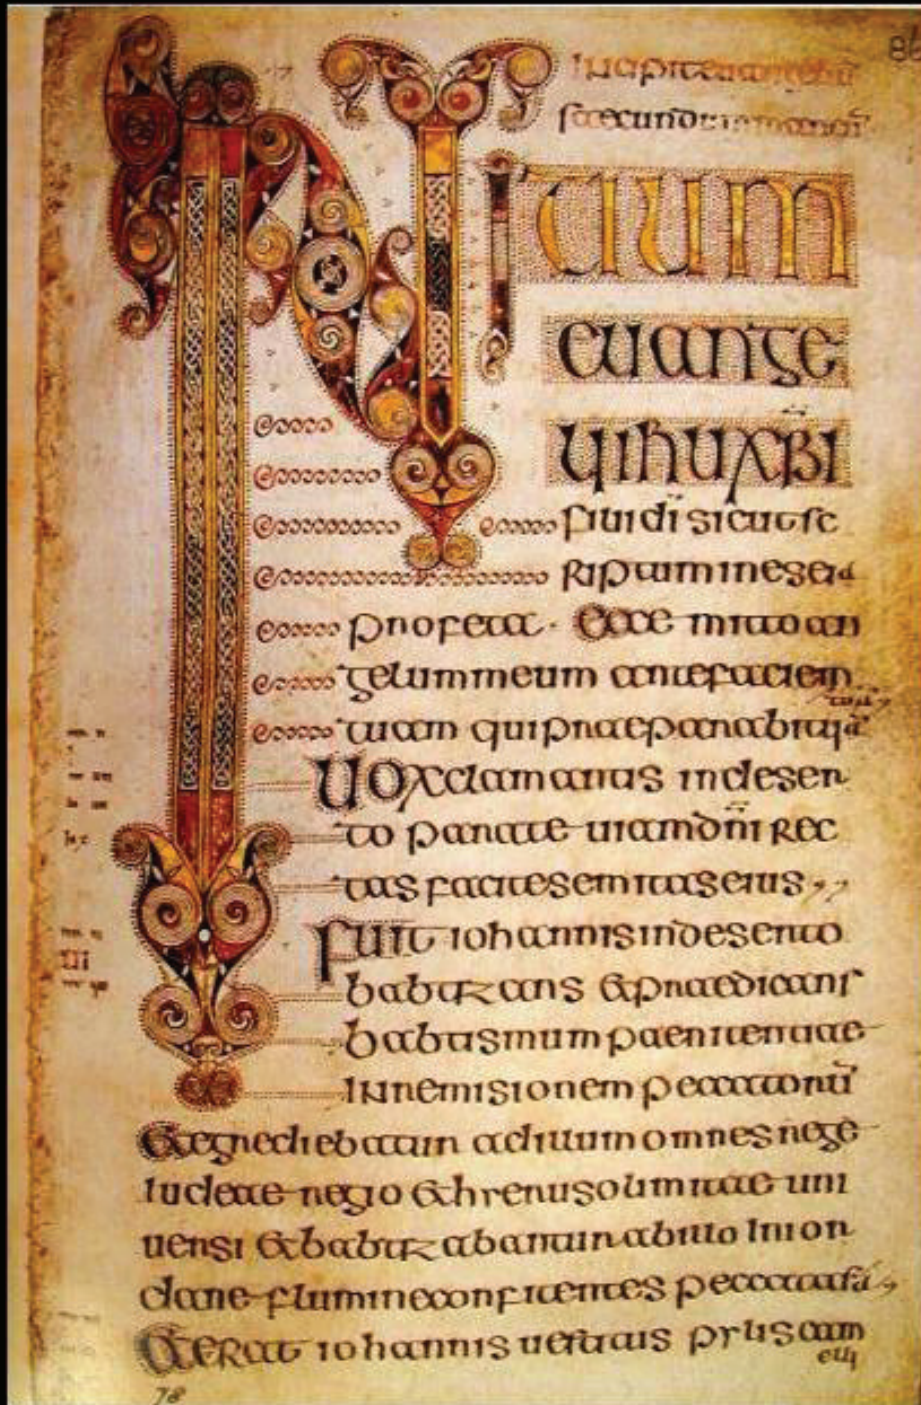 secundum
INItium
euange
lii ihu xpi
filii di sicut sc
riptum in eseia
profeta · Ecce mitto an
gelum meum ante faciem
tuam qui praeparabit uia
tua
Uox clamantis in deser
to parate uiam dni rec
tas facite semitas eius
Fuit iohannis in deserto
babtizans & praedicans
babtismum paenitentiae
in remisionem peccatoru
Et egrediebatur ad illum omnes
iudeae regio & hierusolimitae uni
uersi & babtizabantur ab illo in ior
dane flumine confitentes peccata sua
Et erat iohannis uestitus pylis cam
eli
78